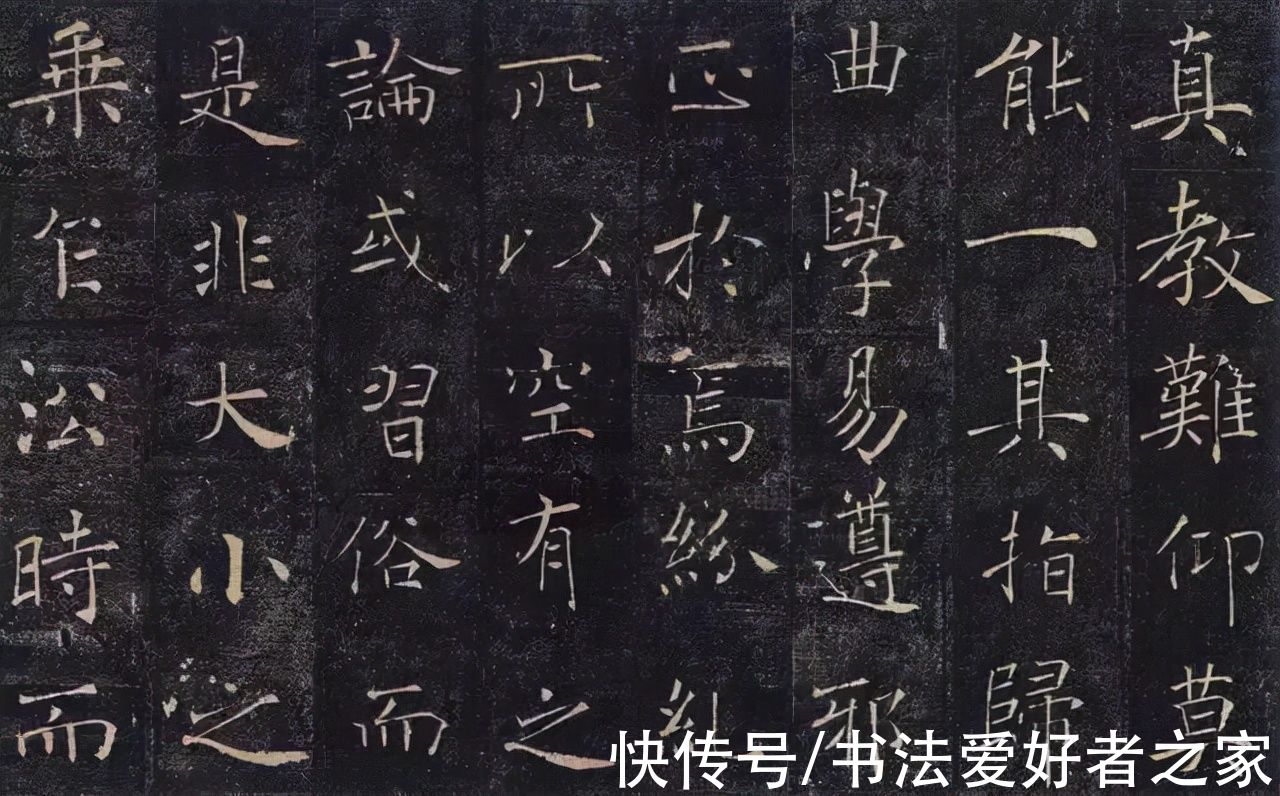 真教難仰莫
能一其指歸
曲學易遵耶
正於焉紛糺
所以空有之
論或習俗而
是非大小之
乗乍沿時而
快传号/书法爱好者之家